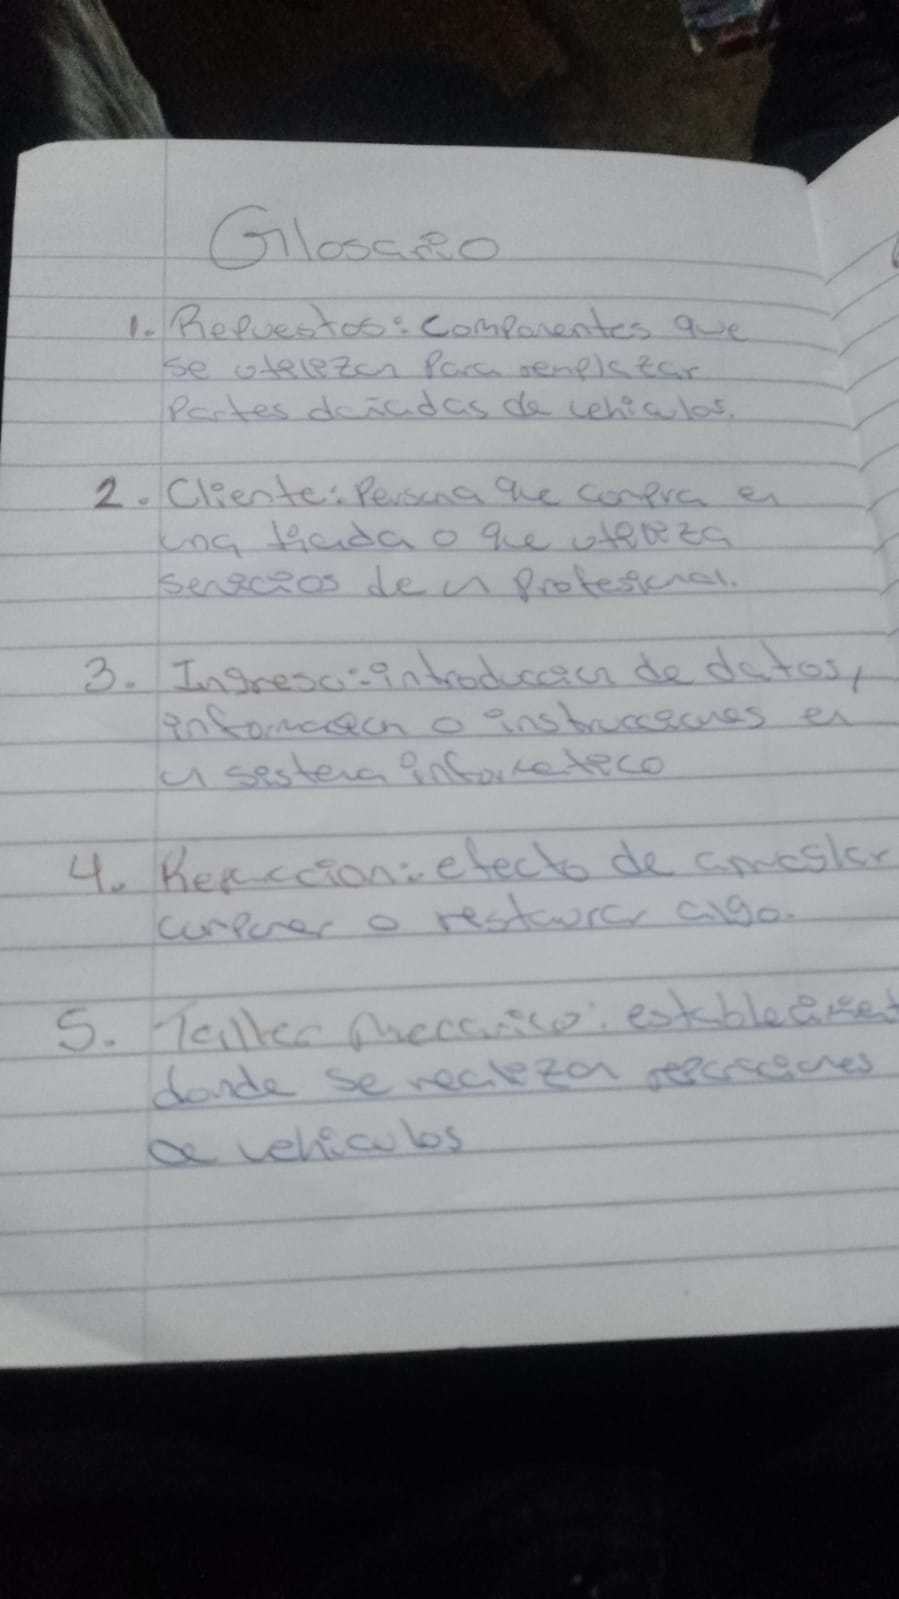 Glosario
1. Repuestos: Componentes que
se utilizan para remplazar
Partes dañadas de vehiculos.
2. Cliente: Persona que compra en
una tienda o que utiliza
servicios de un Profesional.
3. Ingreso: introduccion de datos,
informacion o instrucciones en
un sistema informatico
4. Reparacion: efecto de
componer o restaurar algo.
5. Taller Mecanico: establecimient
donde se realizan reparaciones
de vehiculos